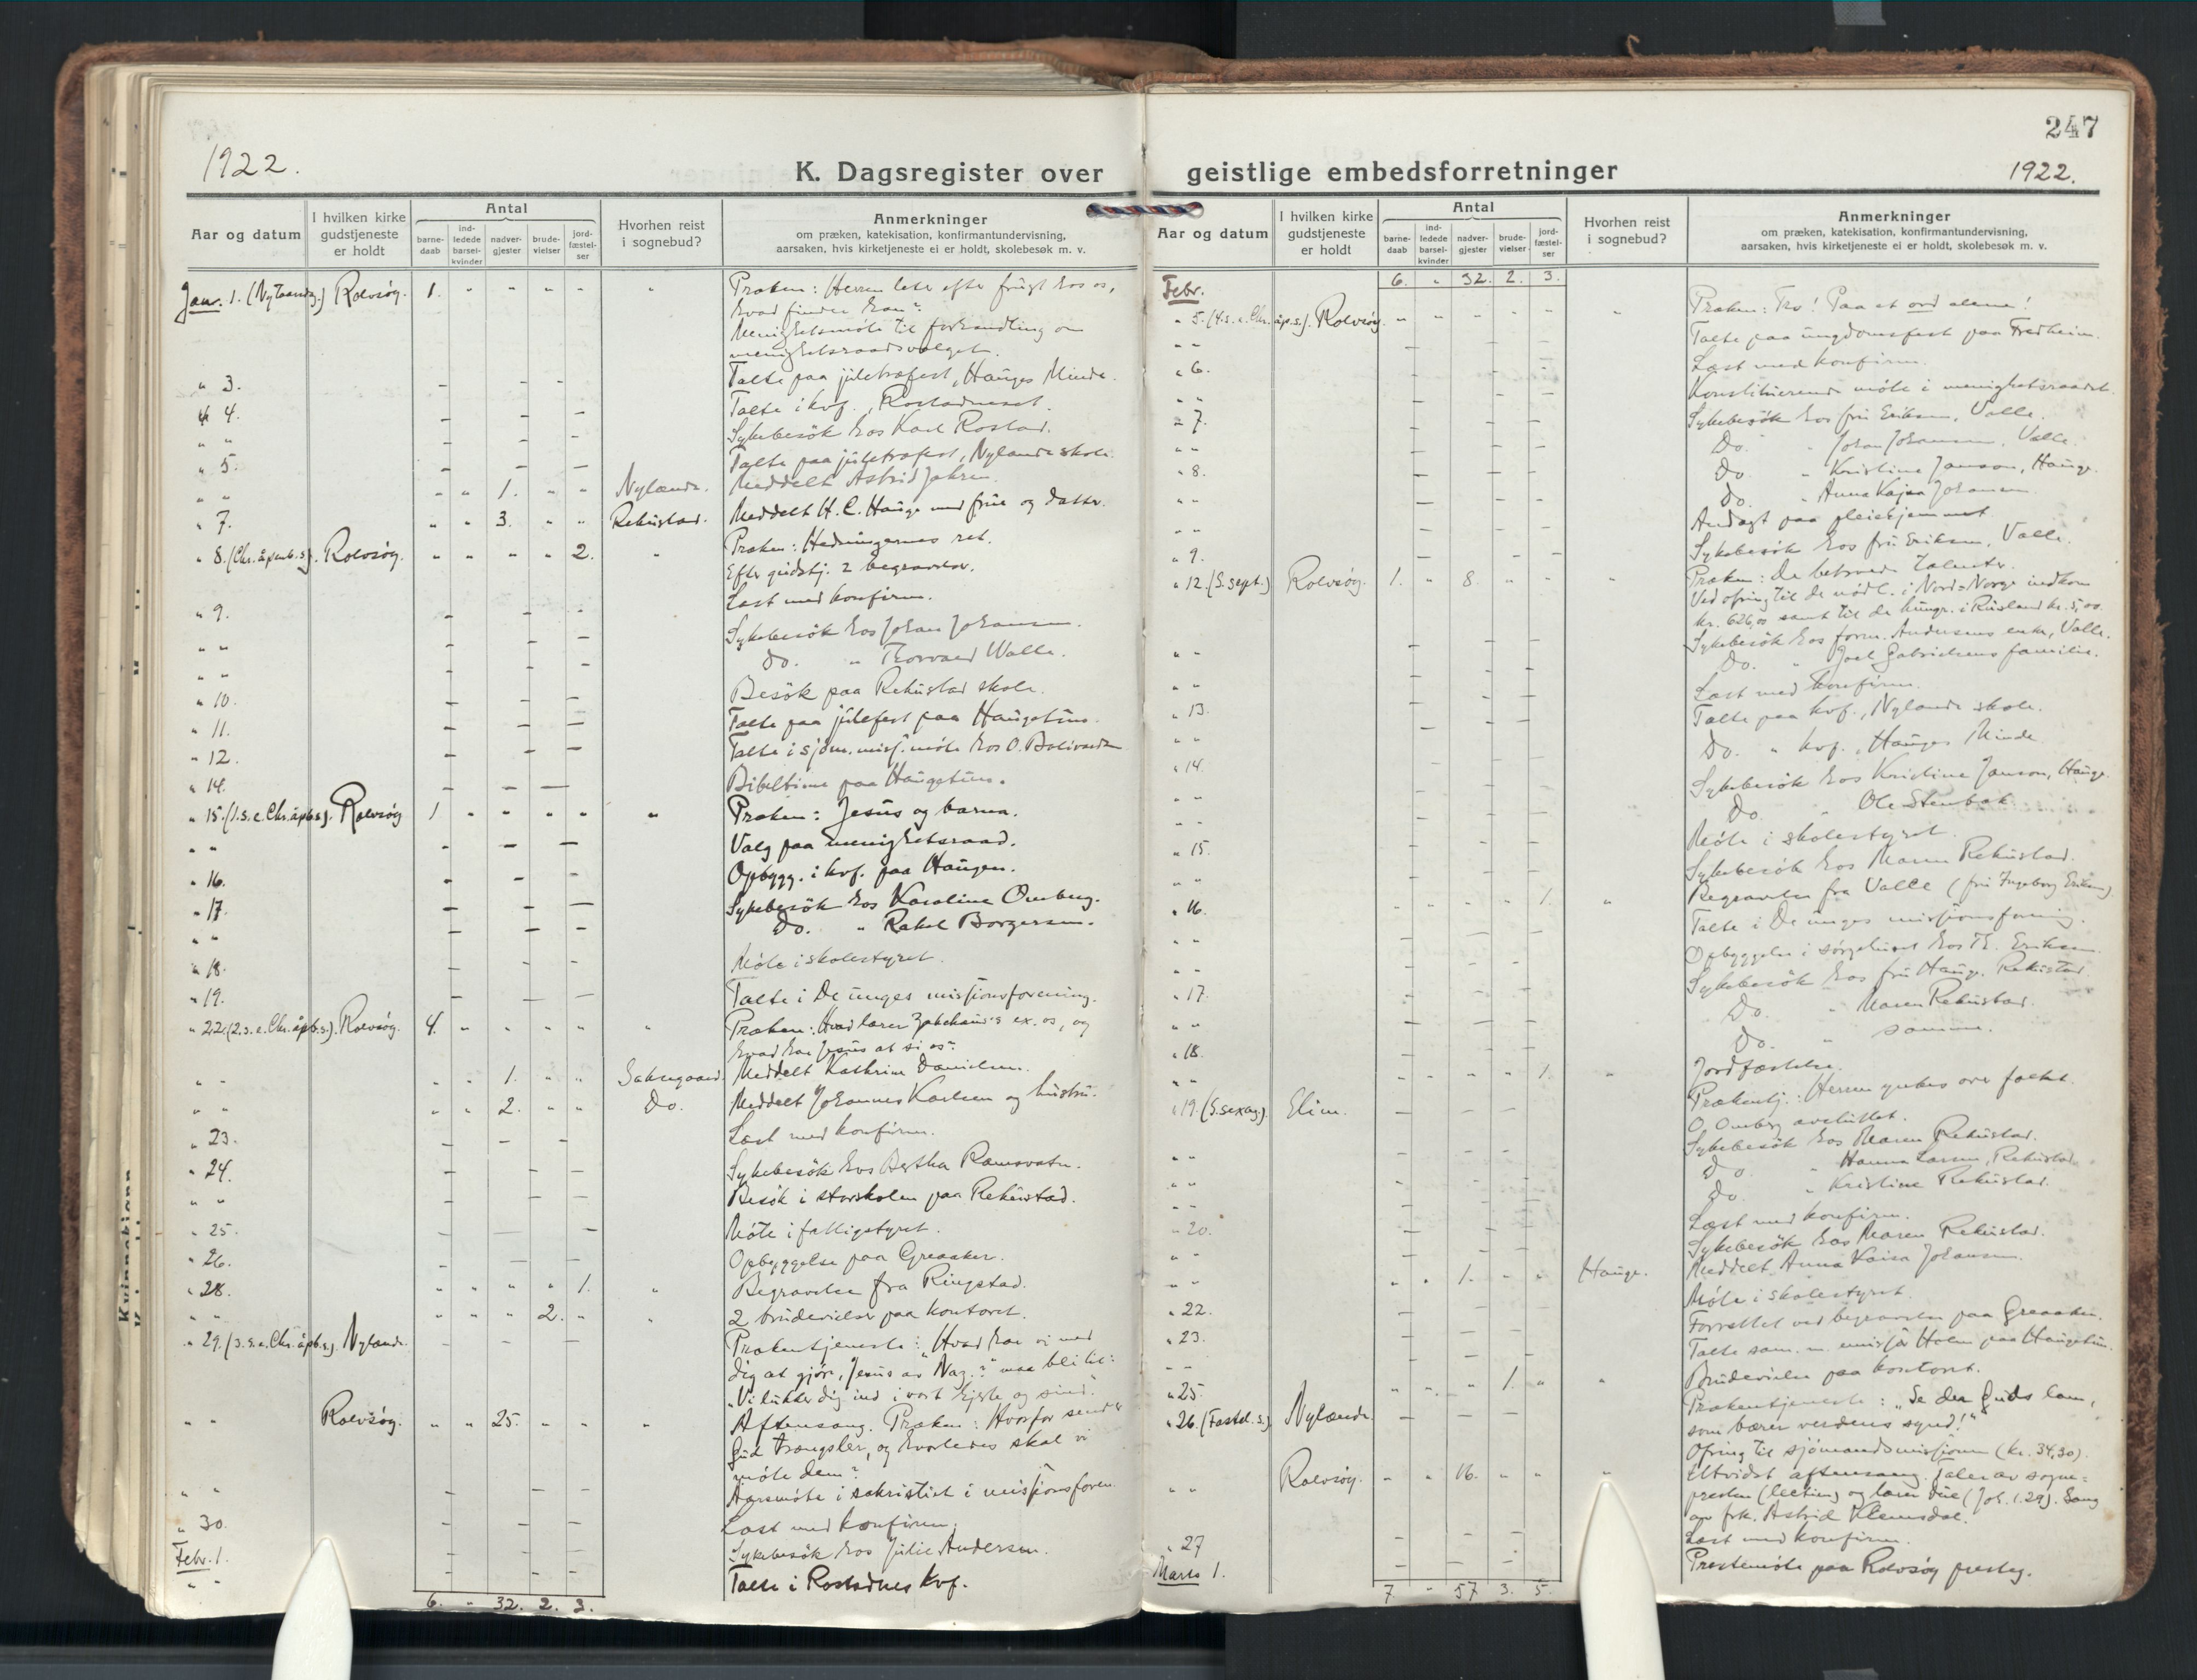 1922.
K. Dagsregister over
Aar og datum
I hvilken kirke gudstjeneste er holdt
Antal
barne-daab
ind-ledede barsel-kvinder
nadver-gjester
brude-vielser
jord-fæstel-ser
Hvorhen reist i sognebud?
Anmerkninger
om præken, katekisation, konfirmantundervisning,
aarsaken, hvis kirketjeneste ei er holdt, skolebesøk m. v.
Jan. 1. (Nytaarsdg.) Rolvsöy. 1. " " " " " Præken: Herren leter efter frugt hos os,
hvad finder han?
Menighetsmöte til forhandling om
menighetsraadsvalget.
" 3. – – – Talte paa juletræfest, Hauges Minde.
" 4. – – – Talte i kvf., Rostadneset.
" " – – – Sykebesök hos Karl Rostad.
" 5. – – – Talte paa juletræfest, Nylænde skole.
" " " " 1. " " Nylænde. Meddelt Astrid Jahren.
" 7. " " 3. " " Rekustad. Meddelt H. C. Hauge med frue og datter.
" 8. (Chr. åpenb.s). Rolvsöy. " " " " 2. " Præken: Hedningernes ret.
Efter gudstj. 2 begravelser.
" 9. – – – Læst med konfirm.
" " – – – Sykebesök hos Johan Johansen.
" " – – – Do. " Thorvald Walle.
" 10. – – – Besök paa Rekustad skole.
" 11. – – – Talte paa julefest paa Haugetun.
" 12. – – – Talte i sjöm.misj. möte hos O. Bolivard
" 14. – – – Bibeltime paa Haugetun.
" 15. (1.s.e.Chr.åpb.s). Rolvsöy 1 " " " " " Præken: Jesus og barna.
" " – – – Valg paa menighetsraad.
" 16. – – – Opbygg. i kvf. paa Haugen.
" 17. – – – Sykebesök hos Karoline Omberg.
" " – – – Do. " Rakel Borgersen.
" 18. – – – Möte i skolestyret.
" 19. – – – Talte i De unges misjonsforening.
" 22. (2.s.e.Chr.åpb.s). Rolvsöy. 4. " " " " " Præken: Hvad lærer Zakchæus's ex. os, og
hvad har Jesus at si os?
" " " " 1. " " Saksegaard. Meddelt Kathrine Danielsen.
" " " " 2. " " Do. Meddelt Johannes Karlsen og hustru.
" 23. – – – Læst med konfirm.
" 24. – – – Sykebesök hos Bertha Ramsvatn.
" " – – – Besök i storskolen paa Rekustad.
" 25. – – – Möte i fattigstyret.
" 26. – – – Opbyggelse paa Greaaker.
" 28. " " " " 1. " Begravelse fra Ringstad.
" " " " " 2. " " 2 brudevielser paa kontoret.
" 29. (3.s.e.Chr.åpb.s). Nylænde. – – – Præketjeneste: "Hvad har vi med
dig at gjöre, Jesus av Naz.?" maa bli til:
"Vi lukker dig ind i vort hjerte og sind."
" " Rolvsöy. " " 25. " " " Aftensang. Præken: Hvorfor sender
Gud trængsler, og hvorledes skal vi
möte dem?
" " – – – Aarsmöte i sakristiet i misjonsforen.
" 30. – – – Læst med konfirm.
Febr. 1. – – – Sykebesök hos Julie Andersen.
" " – – – Talte i Rostadnes kvf.
6. " 32. 2. 3.
247
geistlige embedsforretninger
1922.
Aar og datum
I hvilken kirke gudstjeneste er holdt
Antal
barne-daab
ind-ledede barsel-kvinder
nadver-gjester
brude-vielser
jord-fæstel-ser
Hvorhen reist i sognebud?
Anmerkninger
om præken, katekisation, konfirmantundervisning,
aarsaken, hvis kirketjeneste ei er holdt, skolebesøk m. v.
Febr. 6. " 32. 2. 3.
" 5. (4.s.e.Chr.åp.s). Rolvsöy. " " " " " " Præken: Tro! Paa et ord alene!
" " – – – Talte paa ungdomsfest paa Fredheim.
" 6. – – – Læst med konfirm.
" " – – – Konstituerende möte i menighetsraadet.
" 7. – – – Sykebesök hos fru Eriksen, Valle.
" " – – – Do. " Johan Johansen, Valle.
" 8. – – – Do " Kristine Janson, Hauge.
" " – – – Do. " Anna Kajsa Johansen
" " – – – Andagt paa pleiehjemmet
" 9. – – – Sykebesök hos fru Eriksen, Valle.
" 12. (S. sept.) Rolvsöy. 1. " 8. " " " Præken: De betroede talenter.
Ved ofring til de nödl. i Nord-Norge indkom
kr. 626,00 samt til de hungr. i Rusland kr. 5,00.
" " – – – Sykebesök hos form. Andersens enke, Valle.
" " – – – Do. " Joel Gabrielsens familie.
" 13. – – – Læst med konfirm.
" " – – – Talte paa kvf., Nylænde skole.
" 14. – – – Do. " kvf., Hauges Minde
" " – – – Sykebesök hos Kristine Janson, Hauge.
" " – – – Do " Ole Stenbæk.
" 15. – – – Möte i skolestyret.
" " – – – Sykebesök hos Maren Rekustad.
" 16. " " " " 1. " Begravelse fra Valle (fru Ingeborg Eriksen)
" " – – – Talte i De unges misjonsforening.
" " – – – Opbyggelse i sörgehuset hos Th. Eriksen
" 17. – – – Sykebesök hos fru Hauge, Rekustad.
" " – – – Do. " Maren Rekustad.
" 18. – – – Do. " samme.
" " " " " " 1. " Jordfæstelse.
" 19. (S. sexag.). Elim. – – – Præketj.: Herren ynkes over folket.
O. Omberg avsluttet.
" " – – – Sykebesök hos Maren Rekustad.
" " – – – Do. " Hanna Larsen, Rekustad.
" " – – – Do. " Kristine Rekustad.
" 20. – – – Læst med konfirm.
" " – – – Sykebesök hos Maren Rekustad.
" " " " 1. " " Hauge. Meddelt Anna Kaisa Johansen
" 22. – – – Möte i skolestyret.
" 23. – – – Forrettet ved begravelse paa Greaaker.
" " – – – Talte sam. m. emissær Holm paa Haugetun.
" 25. " " " 1. " " Brudevielse paa kontoret.
" 26. (Fastel.s.) Nylænde. – – – Præketjeneste: "Se der Guds lam,
som bærer verdens synd!"
Ofring til sjömandsmisjonen (kr. 34,30).
" " Rolvsöy. " " 16. " " " Utvidet aftensang. Taler av sogne-
presten (lection) og lærer Due (Joh. 1.29). Sang
av frk. Astrid Klemsdal.
" 27 – – – Læst med konfirm.
Marts 1. – – – Prestemöte paa Rolvsöy presteg.
7 " 57 3. 5.